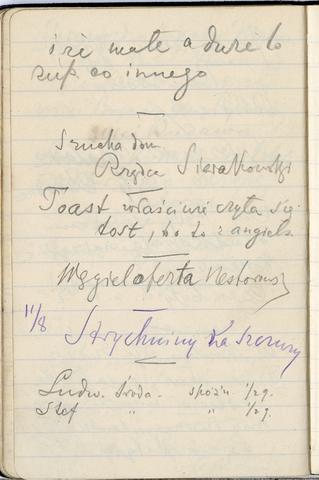 i że małe a duże to
zup. co innego
Szucha dom
Rządca Sieratkowski
Toast właściwie czyta się
tost, bo to z angiels.
Węgiel oferta
11/8
Strychniny na szczury
Ludw. Środa - spóźn 1/2 g.
Stef " " 1/2 g.